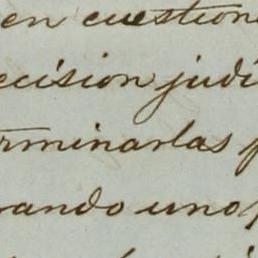 en cuestion
ecision judi
rminarlas p
rando uno p